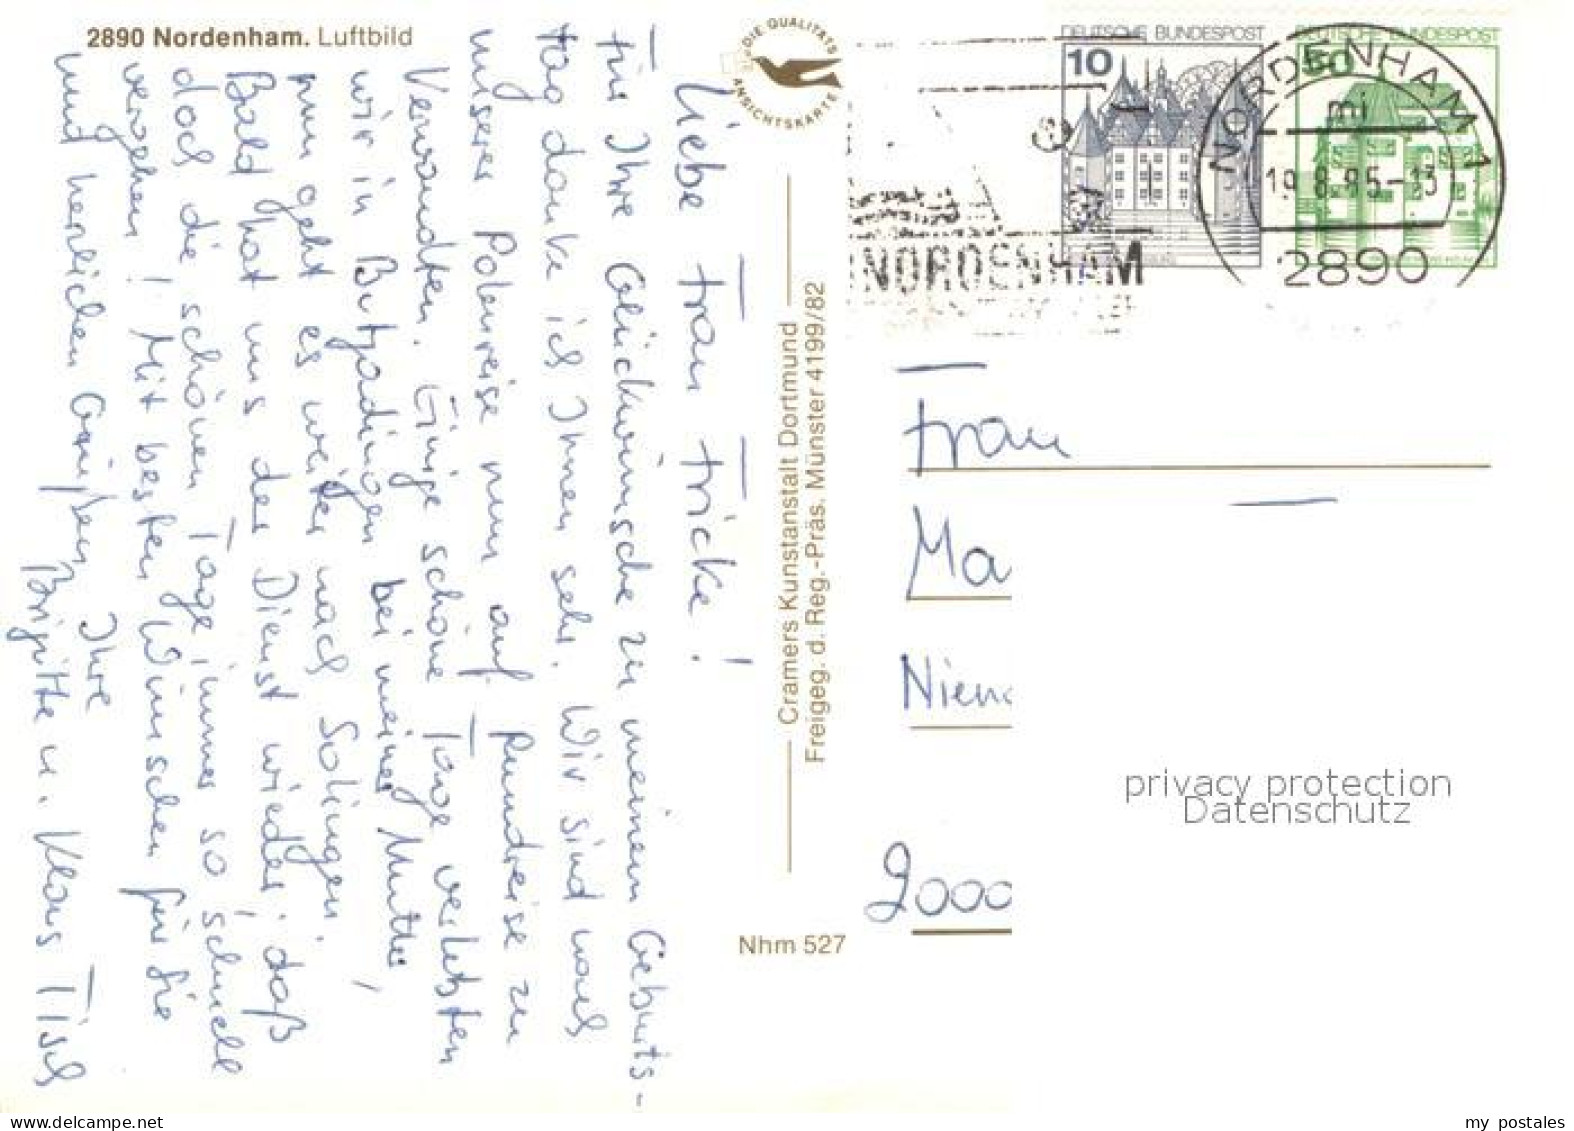 2890 Nordenham. Luftbild
DIE QUALITÄTS
ANSICHTSKARTE
Liebe Frau Fricke!
Für Ihre Glückwünsche zu meinem Geburts-
tag danke ich Ihnen sehr. Wir sind nach
unserer Polenreise nun auf Rundreise zu
Verwandten. Einige schöne Tage verlebten
wir in Butjadingen bei meiner Mutter,
nun geht es weiter nach Solingen.
Bald hat uns der Dienst wieder, daß
doch die schönen Tage immer so schnell
vergehen! Mit besten Wünschen für Sie
und herzlichen Grüßen Ihre
Brigitte u. Klaus Tisch
Cramers Kunstanstalt Dortmund
Freigeg. d. Reg.-Präs. Münster 4199/82
Nhm 527
DEUTSCHE BUNDESPOST
10
DEUTSCHE BUNDESPOST
50
NORDENHAM
NORDENHAM 1
mi
19.8.85-13
2890
Frau
Ma
Nien
2000
privacy protection
Datenschutz
my postales